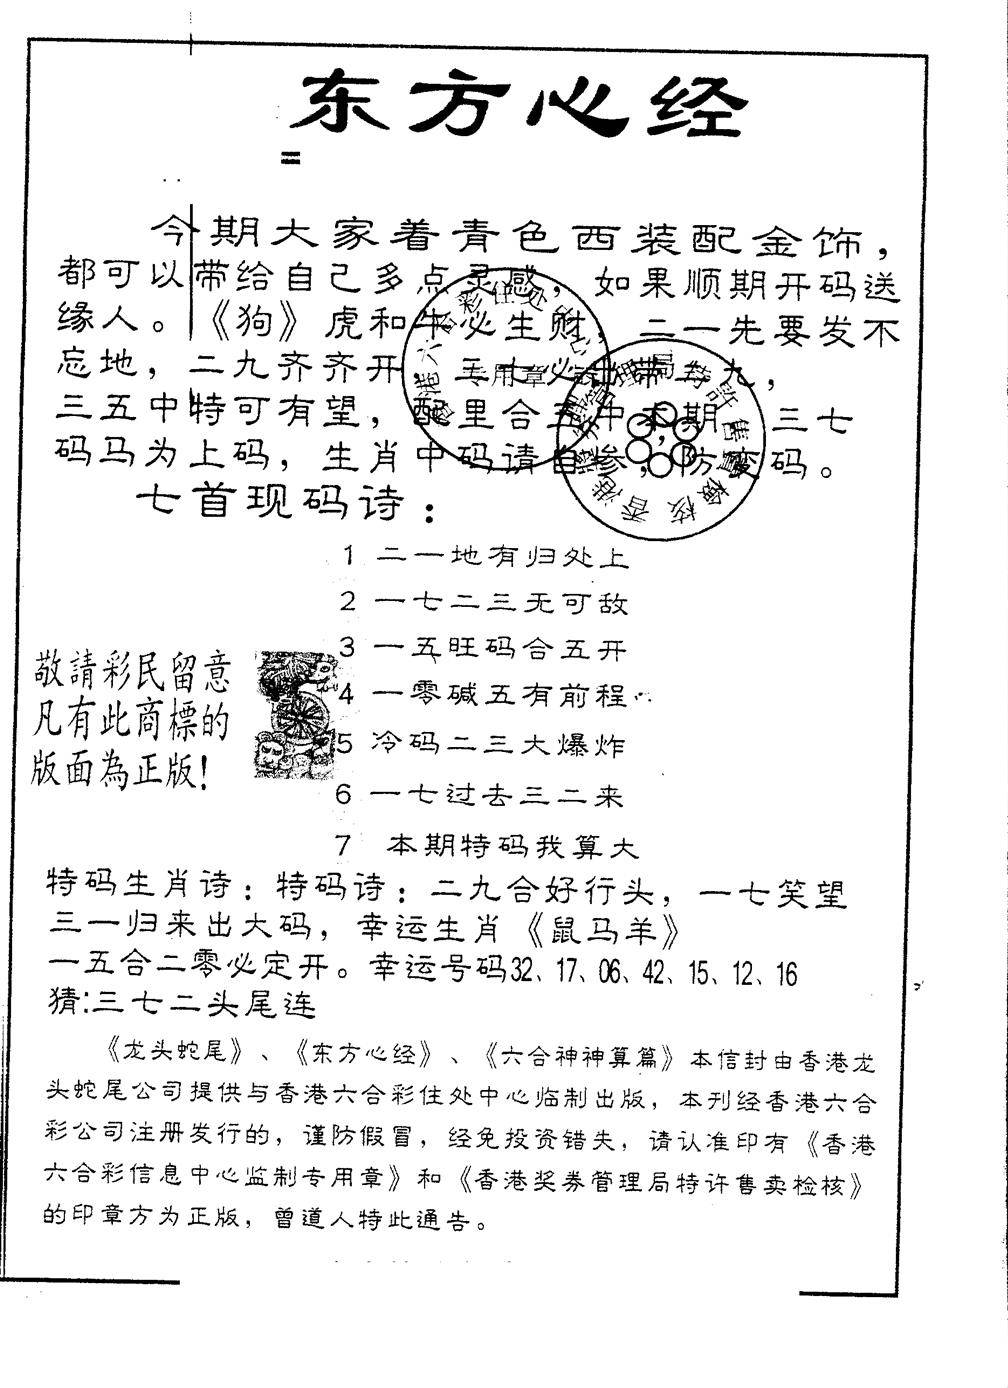 东方心经
=
今期大家着青色西装配金饰，
都可以带给自己多点灵感，如果顺期开码送
缘人。《狗》虎和牛必生财，二一先要发不
忘地，二九齐齐开 三七必出带二九，
三五中特可有望，配里合五中本期，三七
码马为上码，生肖中码请自参，防 码。
七首现码诗：
1 二一地有归处上
2 一七二三无可敌
3 一五旺码合五开
4 一零碱五有前程
5 冷码二三大爆炸
6 一七过去三二来
7 本期特码我算大
敬請彩民留意
凡有此商標的
版面為正版！
特码生肖诗：特码诗：二九合好行头，一七笑望
三一归来出大码，幸运生肖《鼠马羊》
一五合二零必定开。幸运号码32、17、06、42、15、12、16
猜:三七二头尾连
《龙头蛇尾》、《东方心经》、《六合神神算篇》本信封由香港龙
头蛇尾公司提供与香港六合彩住处中心临制出版，本刊经香港六合
彩公司注册发行的，谨防假冒，经免投资错失，请认准印有《香港
六合彩信息中心监制专用章》和《香港奖券管理局特许售卖检核》
的印章方为正版，曾道人特此通告。
香港六合彩住处中心
专用章
香港獎券管理局特許售賣檢核